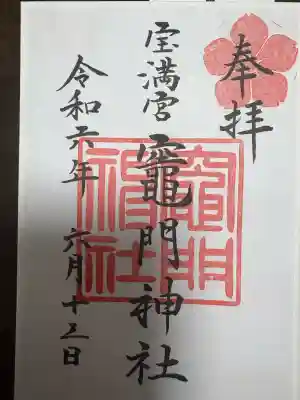 奉拝
宝満宮 竈門神社
令和六年 六月十三日
竈門
神社